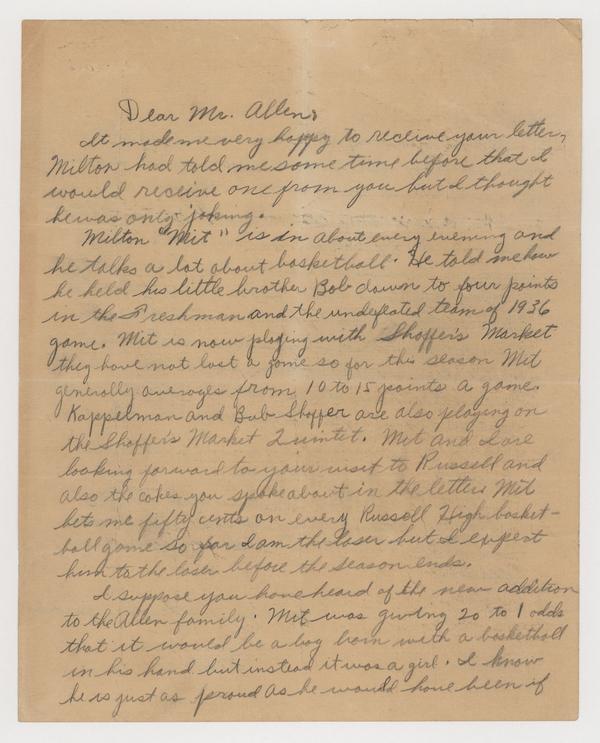 Dear Mr. Allen,
It made me very happy to receive your letter,
Milton had told me some time before that I
would receive one from you but I thought
he was only joking.
Milton "Mit" is in about every evening and
he talks a lot about basketball. He told me how
he held his little brother Bob down to four points
in the Freshman and the undefeated team of 1936
game. Mit is now playing with Shaffer's Market
they have not lost a game so far this season Mit
generally averages from 10 to 15 points a game.
Kappelman and Bob Shaffer are also playing on
the Shaffer's Market Quintet. Mit and I are
looking forward to your visit to Russell and
also the cokes you spoke about in the letter. Mit
bets me fifty cents on every Russell High basket-
ball game so far I am the loser but I expect
him to the loser before the season ends.
I suppose you have heard of the new addition
to the Allen family. Mit was giving 20 to 1 odds
that it would be a boy born with a basketball
in his hand but instead it was a girl. I know
he is just as proud as he would have been if